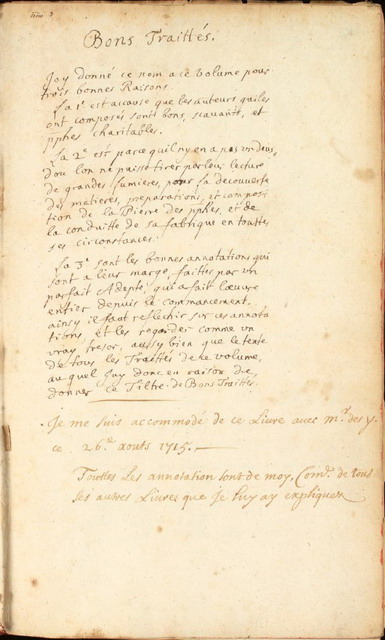 Bons Traittés.
J'ay donné ce nom a ce Volume pour
trois bonnes Raisons.
La 1e est acause que les auteurs qui les
ont composés sont bons, scavants, et
pphes charitables.
La 2e est parce qu'il n'y en a pas un deux,
d'ou l'on ne puisse tirer par leur lecture
de grandes lumieres, pour la decouverte
des matieres, preparations, et composi
tion de la Pierre des pphes, et de
la conduitte de sa fabrique en touttes
ses circonstances.
La 3e sont les bonnes annotations qui
sont a leurs marge, faittes par un
parfait Adepte qui a fait l'œuvre
entier depuis le commancement.
ainsy il faut reflechir sur ces annota
tions, et les regarder comme un
vray tresor, aussy bien que le texte
de tous les Traittés de ce volume,
au quel J'ay donc eu raison de
donner ce Tiltre de Bons Traittés.
Je me suis accommodé de ce Livre avec mr. des y.
ce 26e aouts 1715.
Touttes Les annotation sont de moy, Com. de tous
les autres Livres que Je luy ay expliquez